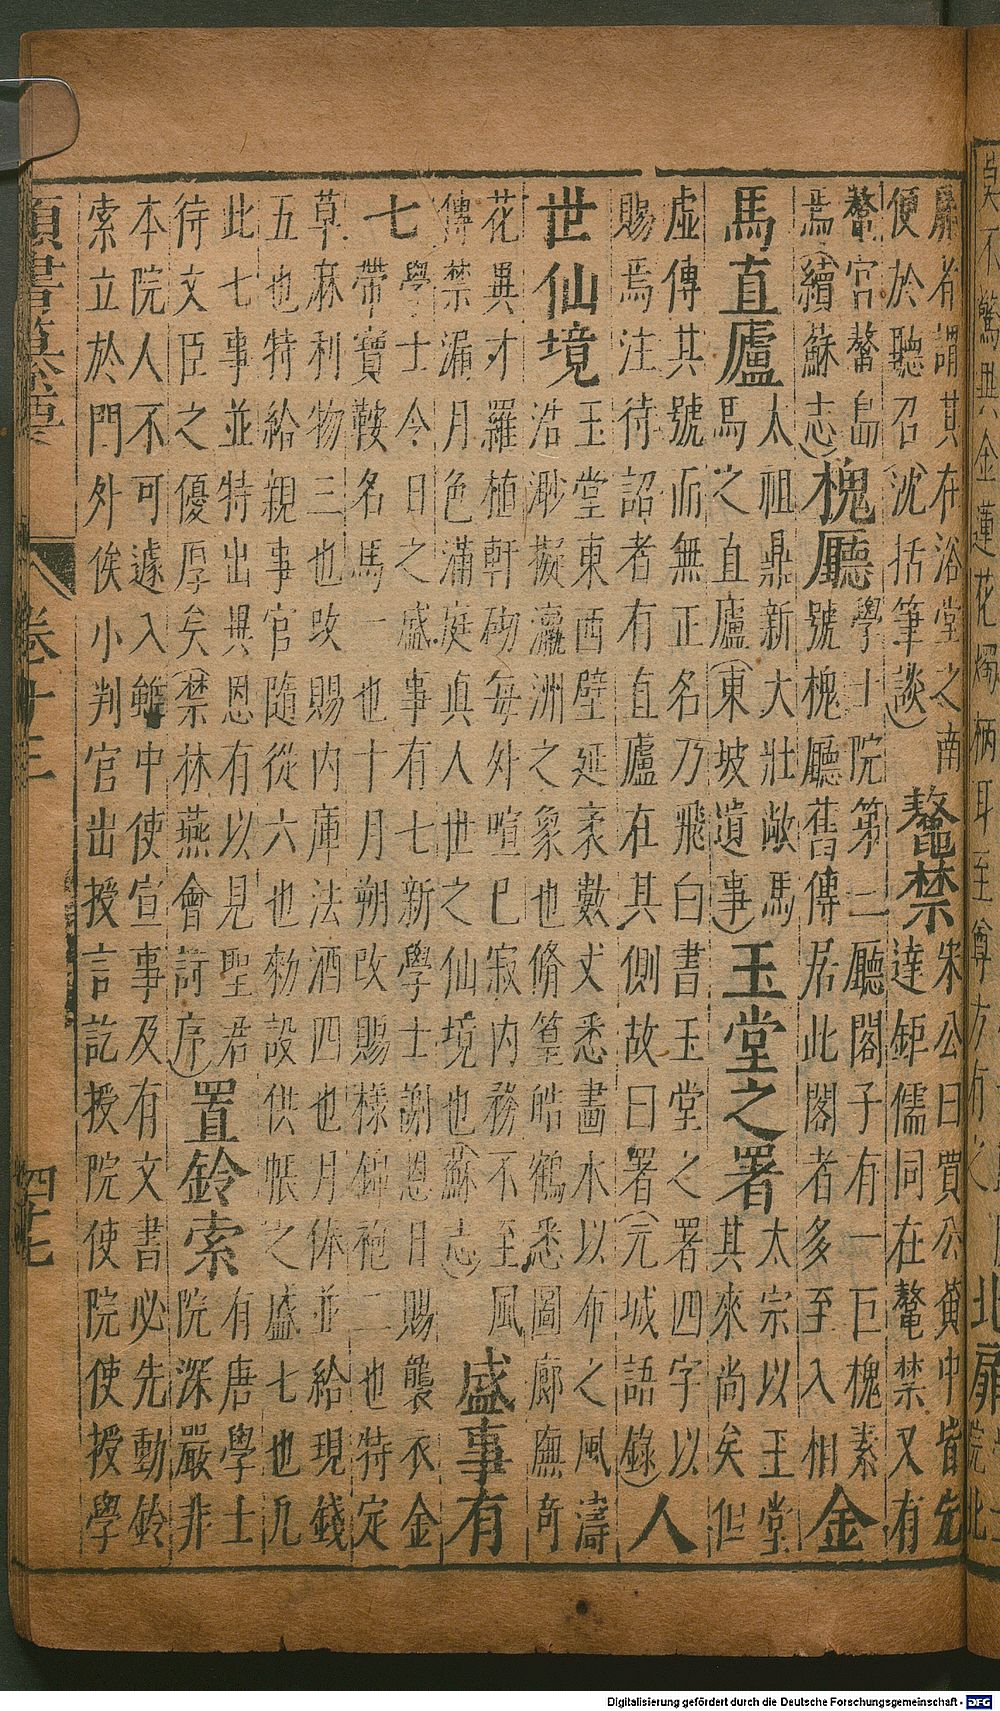 莫不驚異金蓮花燭柄耳至尊方有之
北扉
扉者謂其在浴堂之南
便於聽召(沈括筆談)
鼇禁
宋公曰賈公黃中皆先
達鉅儒同在鼇禁又有
鼇宮鼇島
焉(續蘇志)
槐廳
學士院第二廳閣子有一巨槐素
號槐廳舊傳居此閣者多至入相
金
馬直廬
太祖鼎新大壯敞馬
馬之直廬(東坡遺事)
玉堂之署
太宗以玉堂
其來尚矣但
虛傳其號而無正名乃飛白書玉堂之署四字以
賜焉注待詔者有直廬在其側故曰署(元城語錄)
人
世仙境
玉堂東西壁延袤數丈悉畫水以布之風濤
浩渺擬瀛洲之象也脩篁皓鶴悉圖廊廡奇
花異才羅植軒砌每外喧已寂內務不至風
傳禁漏月色滿庭真人世之仙境也(蘇志)
盛事有
七
學士今日之盛事有七新學士謝恩日賜襲衣金
帶寶鞍名馬一也十月朔改賜樣錦袍二也特定
草麻利物三也改賜內庫法酒四也月俸並給現錢
五也特給親事官隨從六也勑設供帳之盛七也凡
此七事並特出異恩有以見聖君
待文臣之優厚矣(禁林燕會詩序)
置鈴索
有唐學士
院深嚴非
本院人不可遽入雖中使宣事及有文書必先動鈴
索立於門外俟小判官出授言訖授院使院使授學
類書纂要 卷十三 四十七
Digitalisierung gefördert durch die Deutsche Forschungsgemeinschaft - DFG